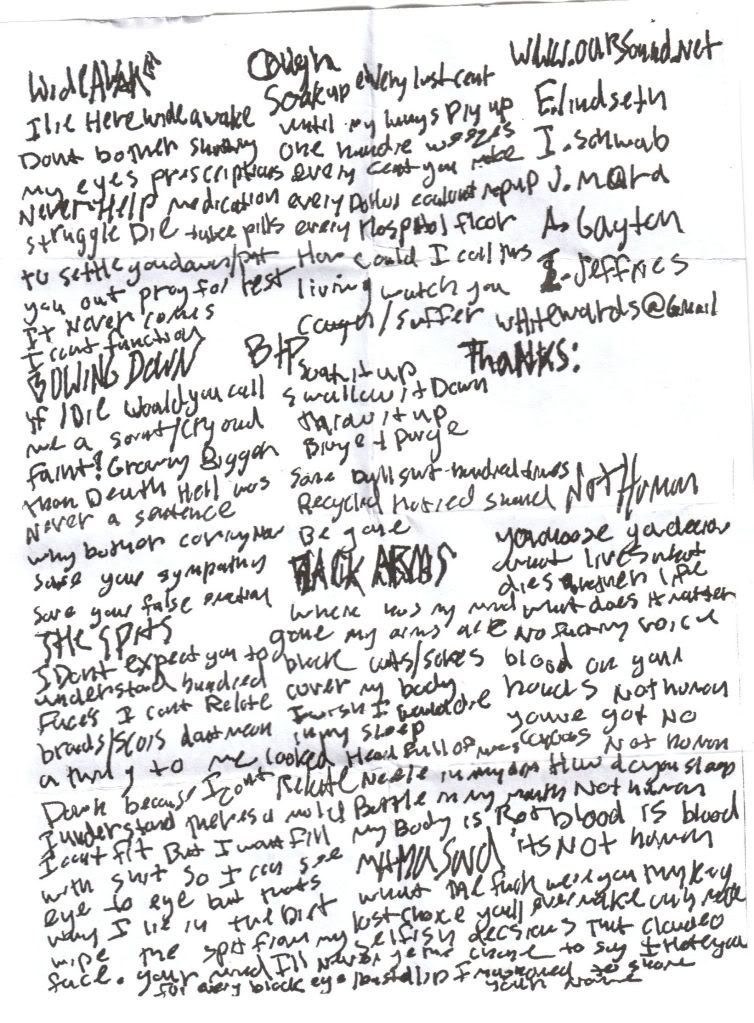 WIDE AWAKE
I lie Here wide awake
Dont bother
my eyes prescriptions
Never Help medication
struggle Die pills
to settle you down/
you out pray for rest
It Never comes
I cant function
Cough
Soak up every last cent
until my lungs Dry up
One hundred
every cent you make
every Dollar
every Hospital floor
How could I call this
living watch you
cough/suffer
www.oursound.net
E.lindseth
I. schwab
J. mora
A. Gayten
I. Jeffries
whitewards@Gmail
THANKS:
BOWING DOWN
if I Die would you call
me a saint/cry out
faint? Growing Bigger
than Death Hell was
Never a sentence
why bother caring Now
save your sympathy
save your false
B+P
Soak it up
swallow it Down
throw it up
Binge + Purge
same bullshit hundred times
Recycled hatred
Be gone
THE SPITS
I Dont expect you to
understand hundred
Faces I cant Relate
braids/scars dont mean
a thing to me looked
Down because I cant Relate
I understand theres a mold
I cant fit But I want fill
with shit so I can see
eye to eye but thats
why I lie in the Dirt
wipe the spit from my
face.
BLACK ARMS
where has my mind
gone my arms are
black cuts/sores
cover my body
I wish I would die
in my sleep
Head full of
Needle in my arm
Bottle in my mouth
my Body is Rot
NOT HUMAN
you choose you decide
what lives what
dies
what does it matter
No fucking voice
blood on your
hands Not human
youve got No
Not human
How do you sleep
Not human
blood IS blood
its Not human
what the fuck were you thinking
last choice youll ever make
selfish decisions that clouded
your mind Ill Never get the chance to say I Hate you
for every black eye/busted lip I to share
your Name